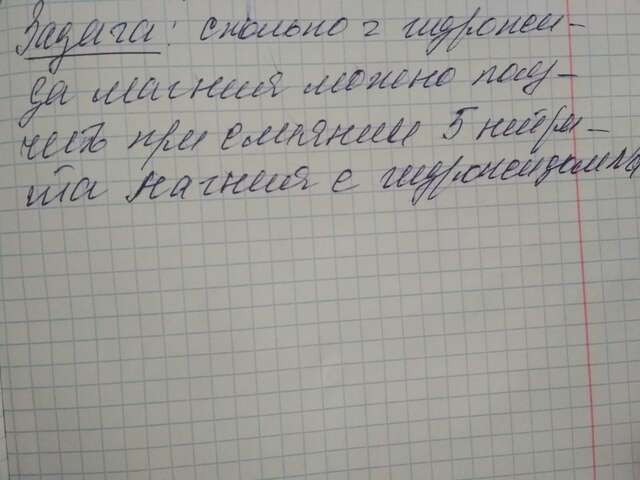 Задача: сколько г гидрокси-
да магния можно полу-
чить при слиянии 5 нитри-
та магния с гидроксидом